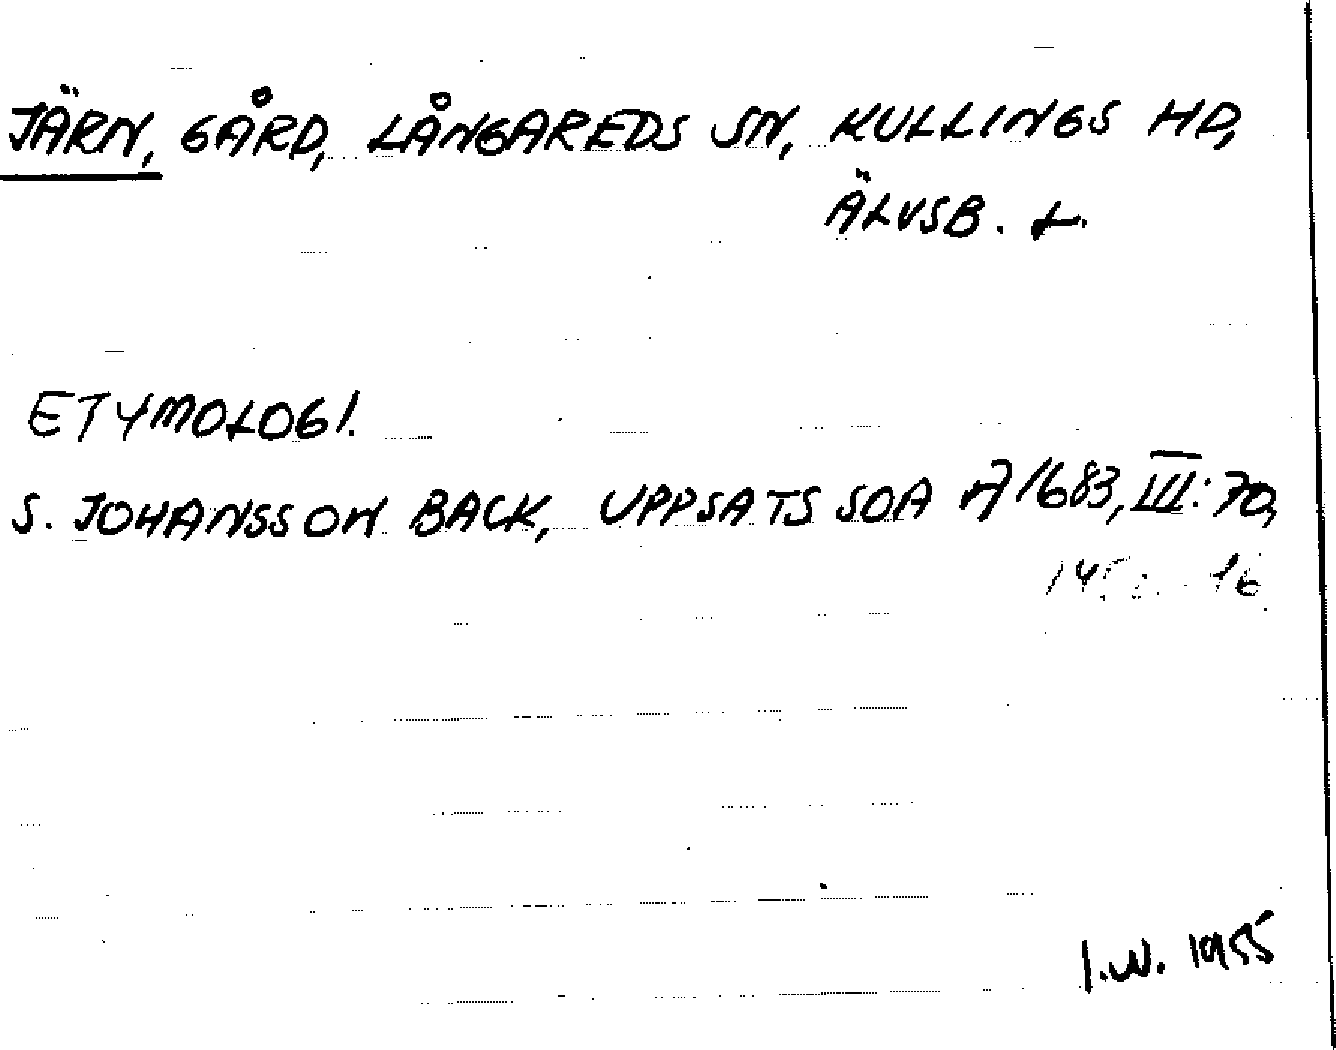 JÄRN, GÅRD, LÅNGAREDS SN, KULLINGS HD,
ÄLVSB. L.
ETYMOLOGI.
S. JOHANSSON BACK, UPPSATS SOA A 1683, III: 70,
16
I.W. 1955